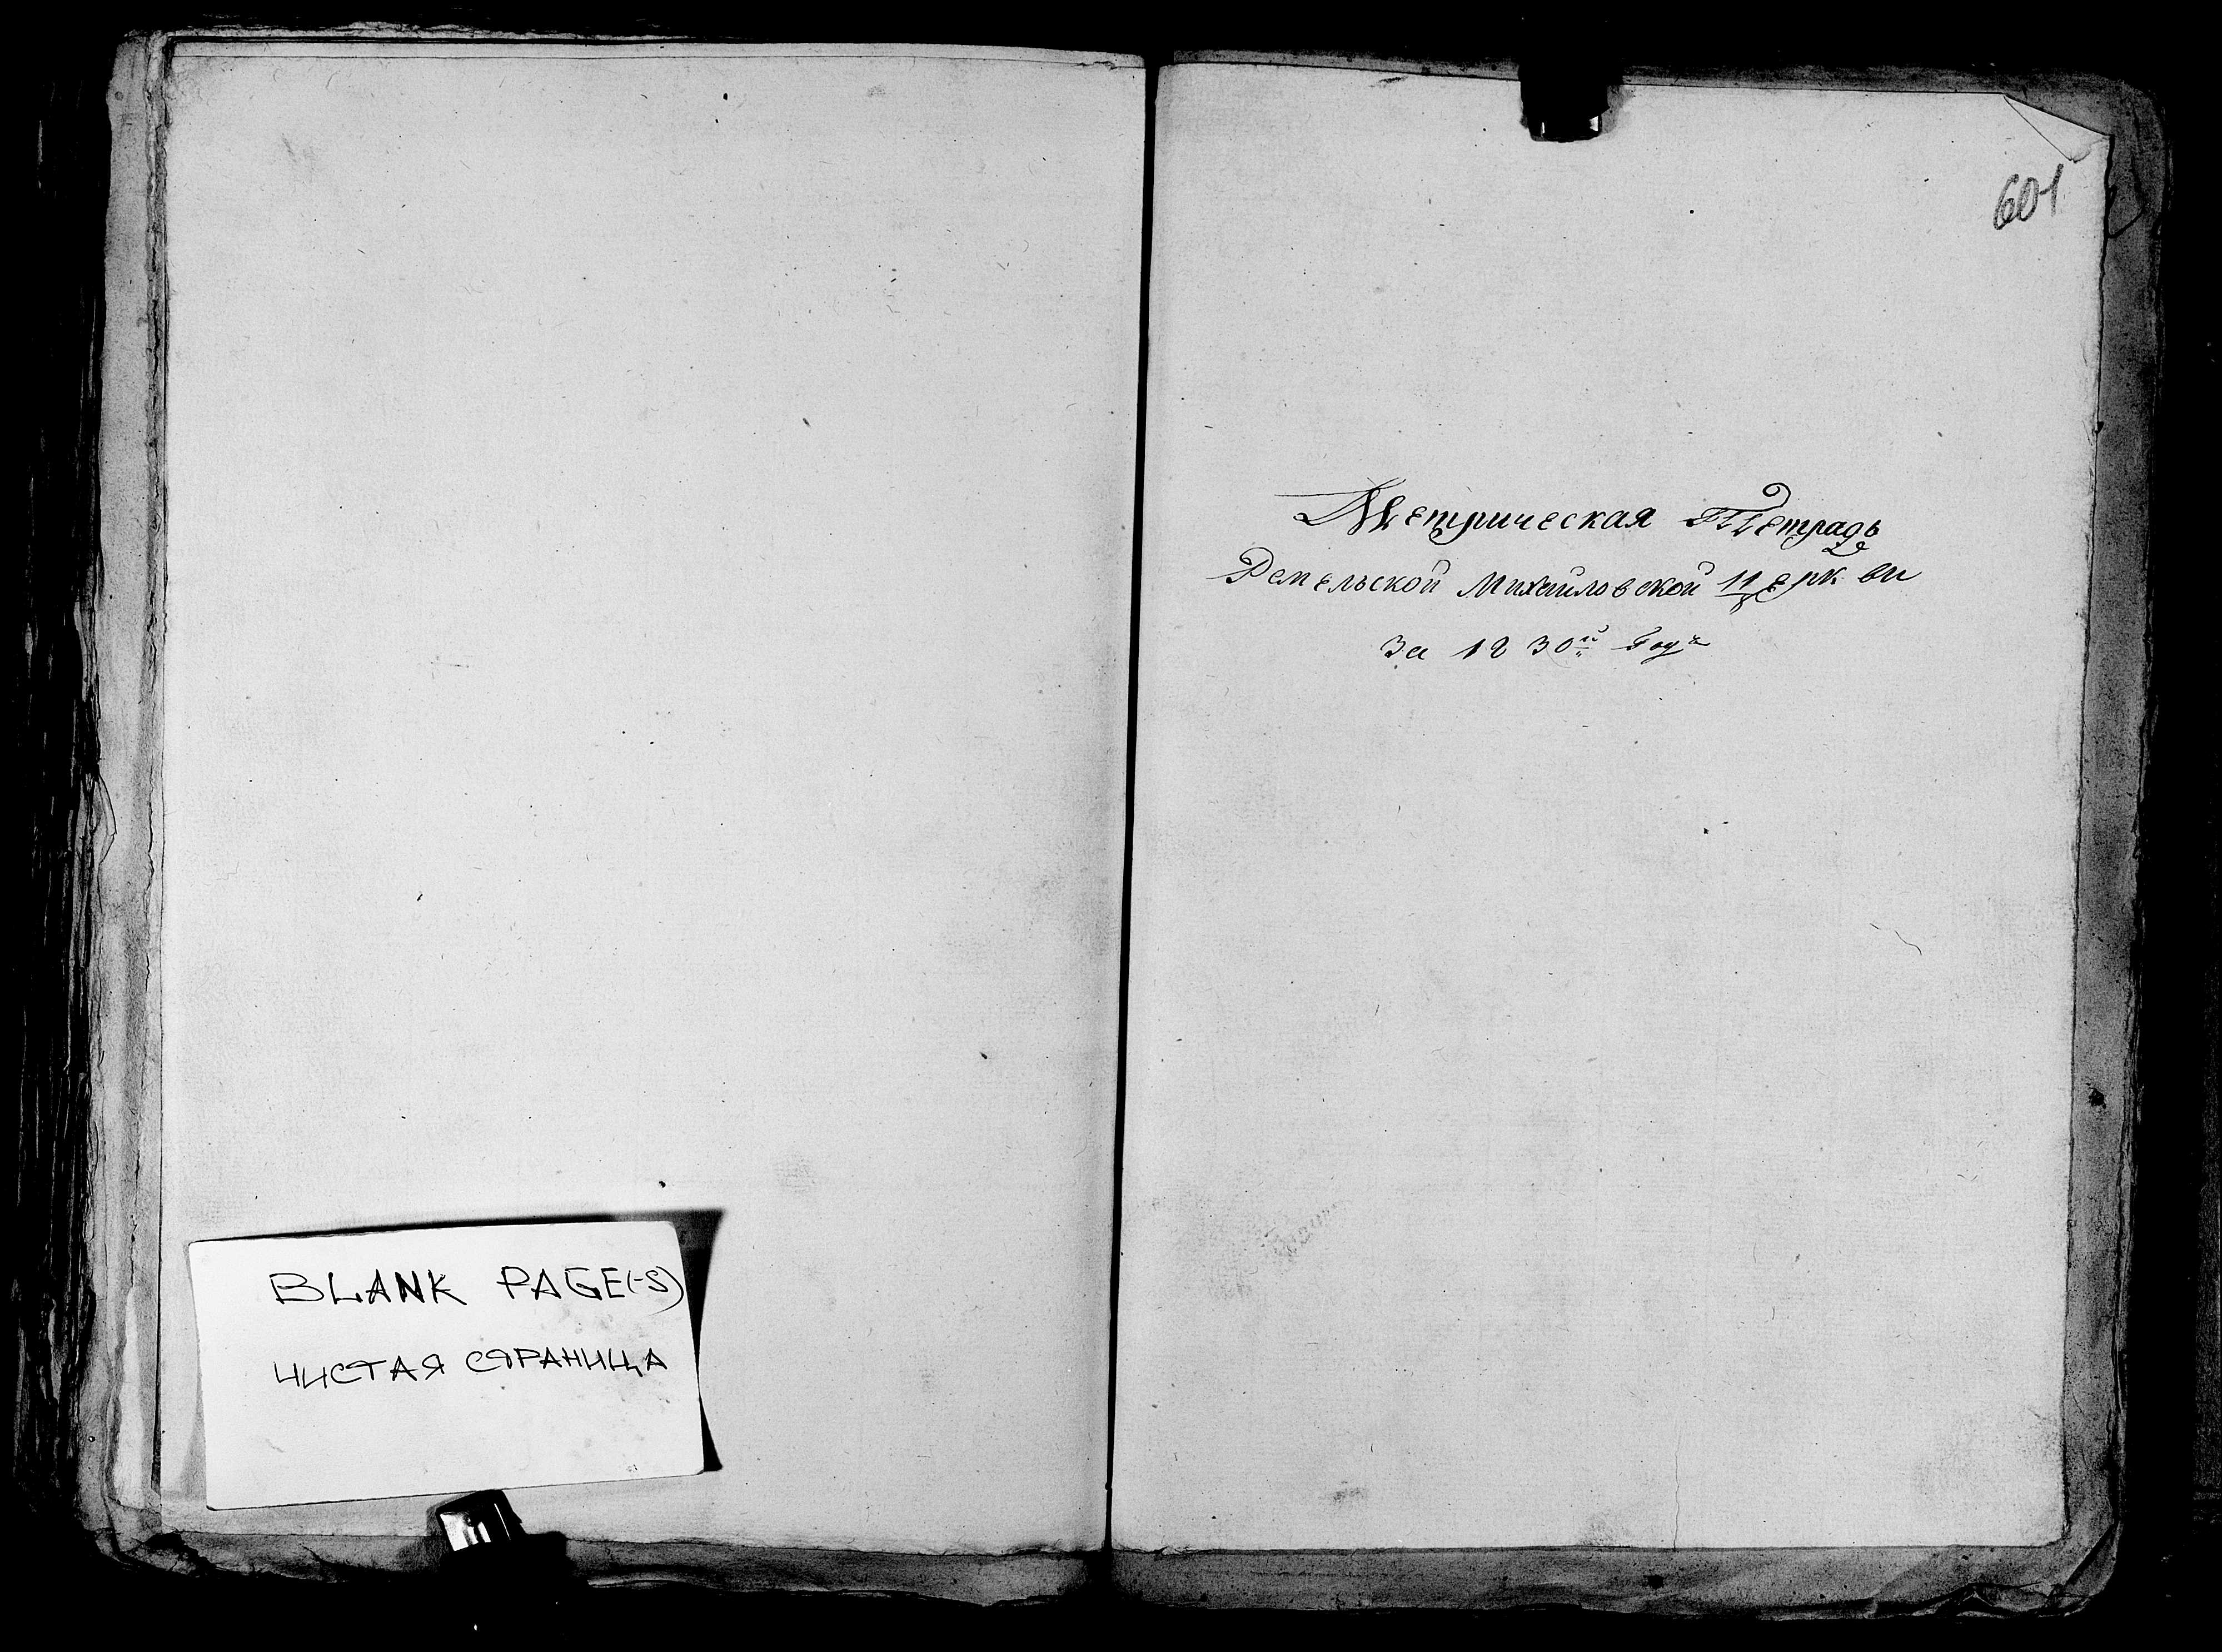 BLANK PAGE(-S)
ЧИСТАЯ СТРАНИЦА
601
Метрическая Тетрадь
Ремельской Михайловской Церкви
За 1830й Годъ